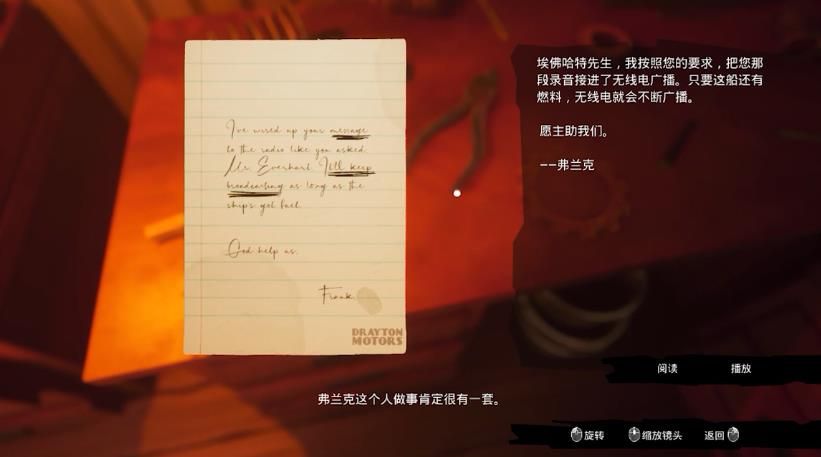 I've wired up your message
to the radio like you asked,
Mr. Everhart. It'll keep
broadcasting as long as the
ship's got fuel.
God help us.
Frank
DRAYTON
MOTORS
埃佛哈特先生，我按照您的要求，把您那
段录音接进了无线电广播。只要这船还有
燃料，无线电就会不断广播。
愿主助我们。
——弗兰克
阅读 播放
弗兰克这个人做事肯定很有一套。
旋转 缩放镜头 返回